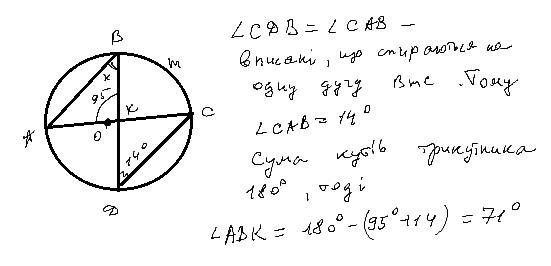 B
m
x
95
K
C
A
O
14°
D
∠CDB = ∠CAB –
вписані, що спираються на
одну дугу BmC. Тому
∠CAB = 14°
Сума кутів трикутника
180°, тоді
∠ABK = 180° – (95° + 14) = 71°